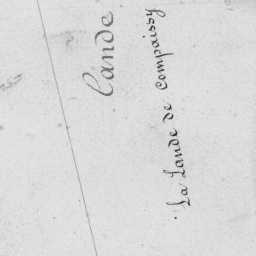 Lande
La Lande de Compaissy